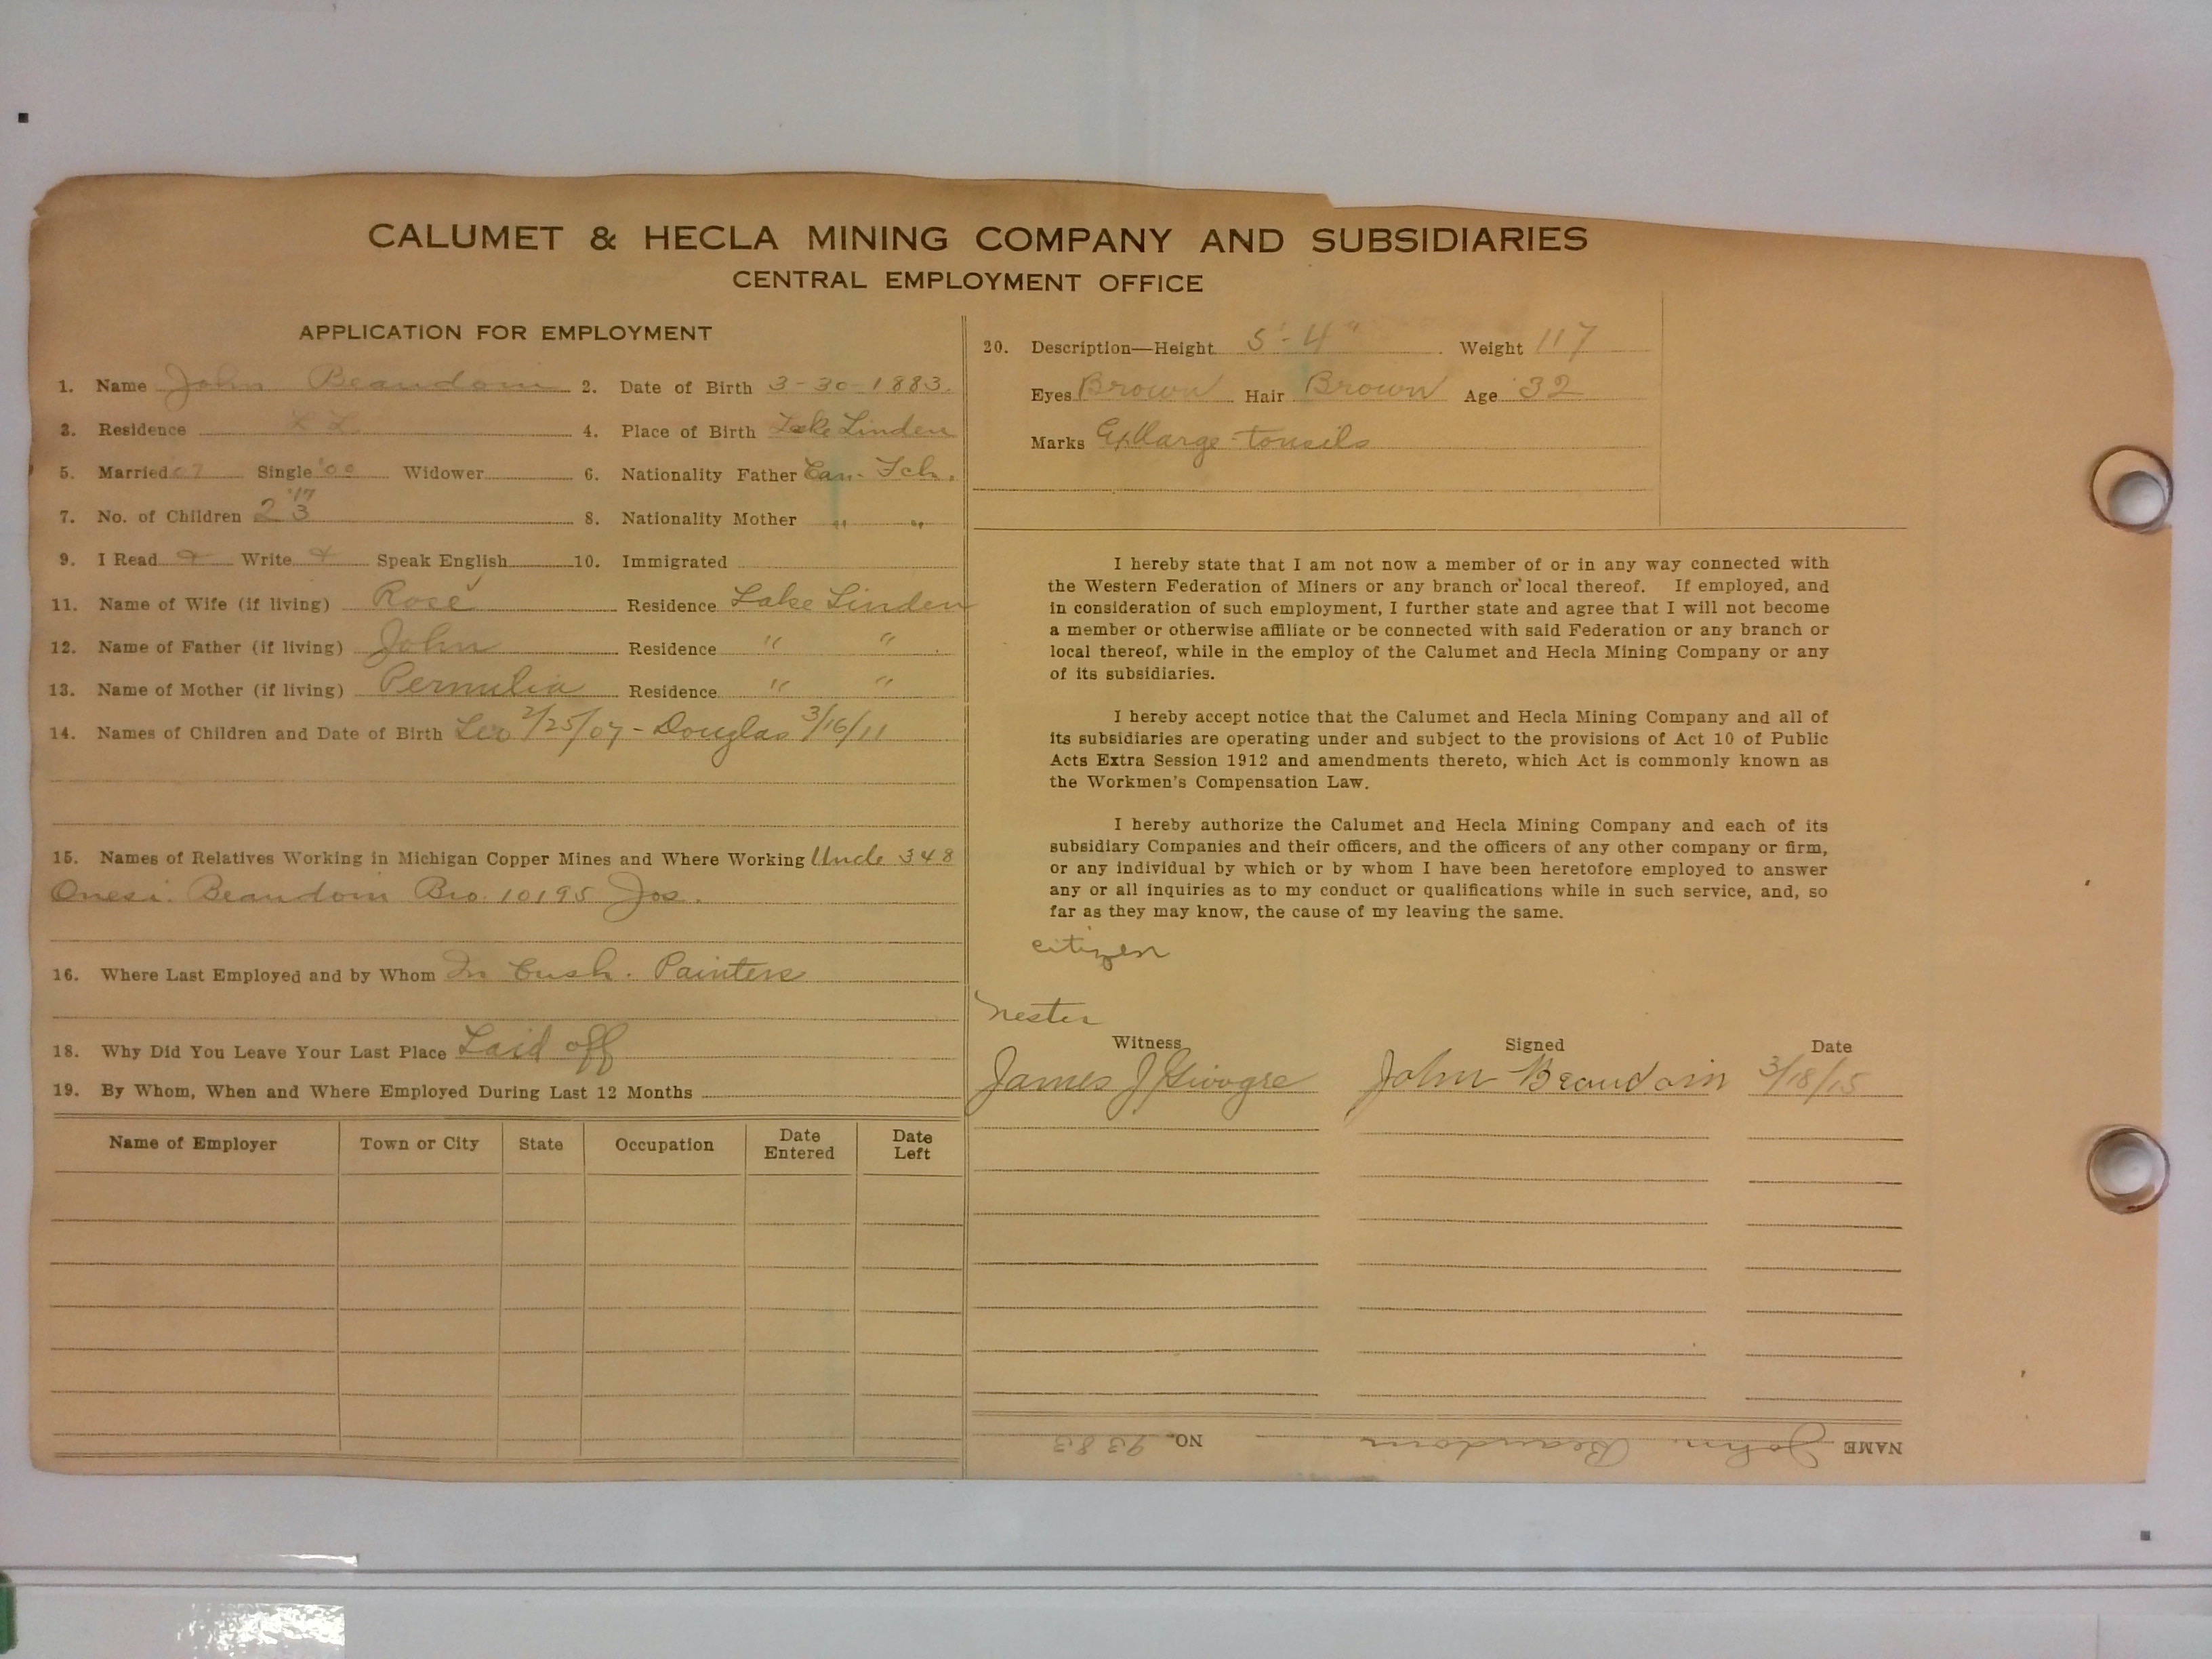 CALUMET & HECLA MINING COMPANY AND SUBSIDIARIES
CENTRAL EMPLOYMENT OFFICE
APPLICATION FOR EMPLOYMENT
1. Name John Beaudoin 2. Date of Birth 3-30-1883.
3. Residence L L 4. Place of Birth Lake Linden
5. Married 07 Single '00 Widower 6. Nationality Father Can- Fch.
7. No. of Children 2 '17 3 8. Nationality Mother " "
9. I Read Write Speak English 10. Immigrated
11. Name of Wife (if living) Rose Residence Lake Linden
12. Name of Father (if living) John Residence " "
13. Name of Mother (if living) Residence " "
14. Names of Children and Date of Birth Leo 2/25/07 - Douglas 3/16/11
15. Names of Relatives Working in Michigan Copper Mines and Where Working Uncle 348
Onesi. Beaudoin Bro. 10195 Jos.
16. Where Last Employed and by Whom In Painters
18. Why Did You Leave Your Last Place Laid off
19. By Whom, When and Where Employed During Last 12 Months
Name of Employer Town or City State Occupation Date Entered Date Left
20. Description—Height 5'-4" Weight 117
Eyes Brown Hair Brown Age 32
Marks tonsils
I hereby state that I am not now a member of or in any way connected with
the Western Federation of Miners or any branch or local thereof. If employed, and
in consideration of such employment, I further state and agree that I will not become
a member or otherwise affiliate or be connected with said Federation or any branch or
local thereof, while in the employ of the Calumet and Hecla Mining Company or any
of its subsidiaries.
I hereby accept notice that the Calumet and Hecla Mining Company and all of
its subsidiaries are operating under and subject to the provisions of Act 10 of Public
Acts Extra Session 1912 and amendments thereto, which Act is commonly known as
the Workmen's Compensation Law.
I hereby authorize the Calumet and Hecla Mining Company and each of its
subsidiary Companies and their officers, and the officers of any other company or firm,
or any individual by which or by whom I have been heretofore employed to answer
any or all inquiries as to my conduct or qualifications while in such service, and, so
far as they may know, the cause of my leaving the same.
citizen
Nester
Witness Signed Date
James J John Beaudoin 3/18/15
NAME John Beaudoin NO. 9383